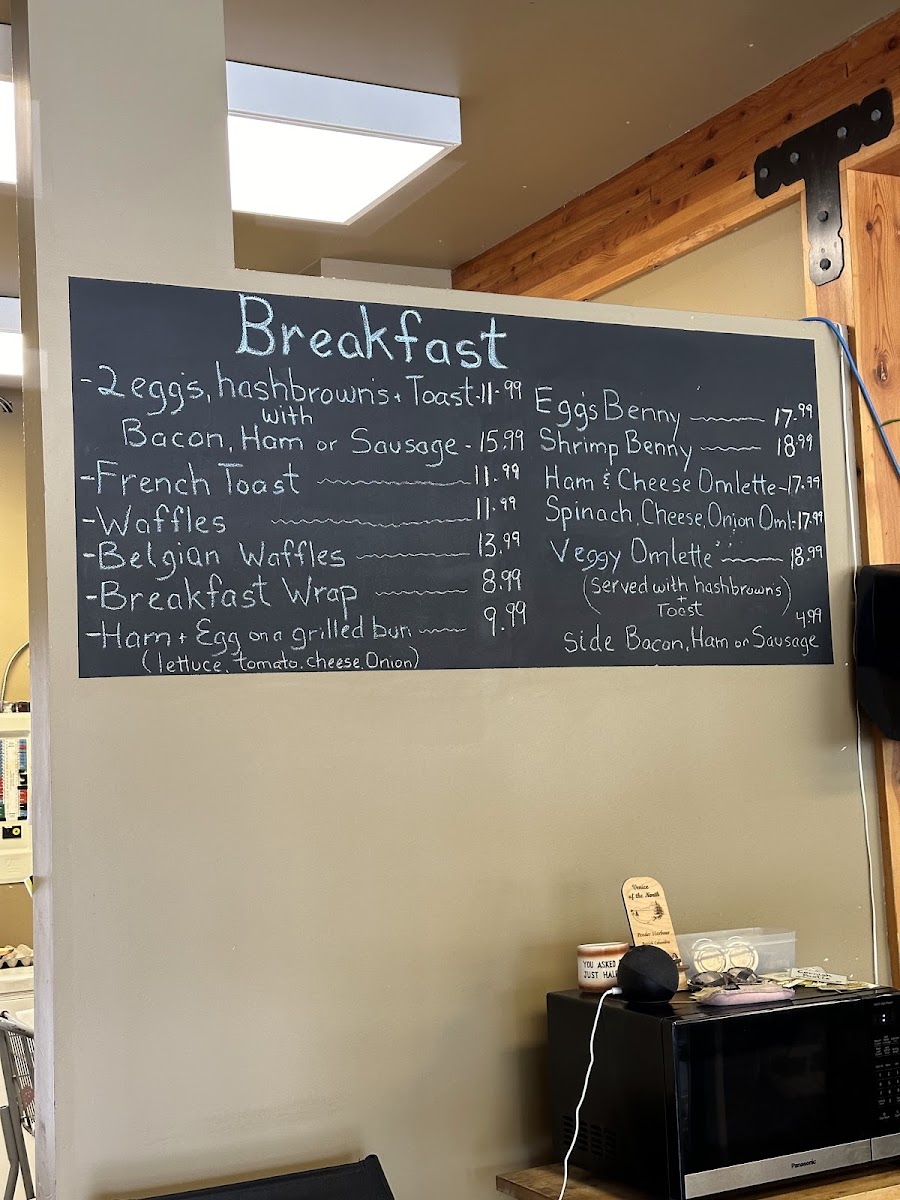 Breakfast
-2 egg's, hashbrown's + Toast-11.99
with
Bacon, Ham or Sausage - 15.99
-French Toast 11.99
-Waffles 11.99
-Belgian Waffles 13.99
-Breakfast Wrap 8.99
-Ham + Egg on a grilled bun 9.99
(lettuce, tomato, cheese, Onion)
Egg's Benny 17.99
Shrimp Benny 18.99
Ham & Cheese Omlette-17.99
Spinach, Cheese, Onion Oml-17.99
Veggy Omlette 18.99
(served with hashbrown's)
+
Toast
4.99
Side Bacon, Ham or Sausage
Venice
of the North
Pender Harbour
British Columbia
YOU ASKED
JUST HAL
Panasonic